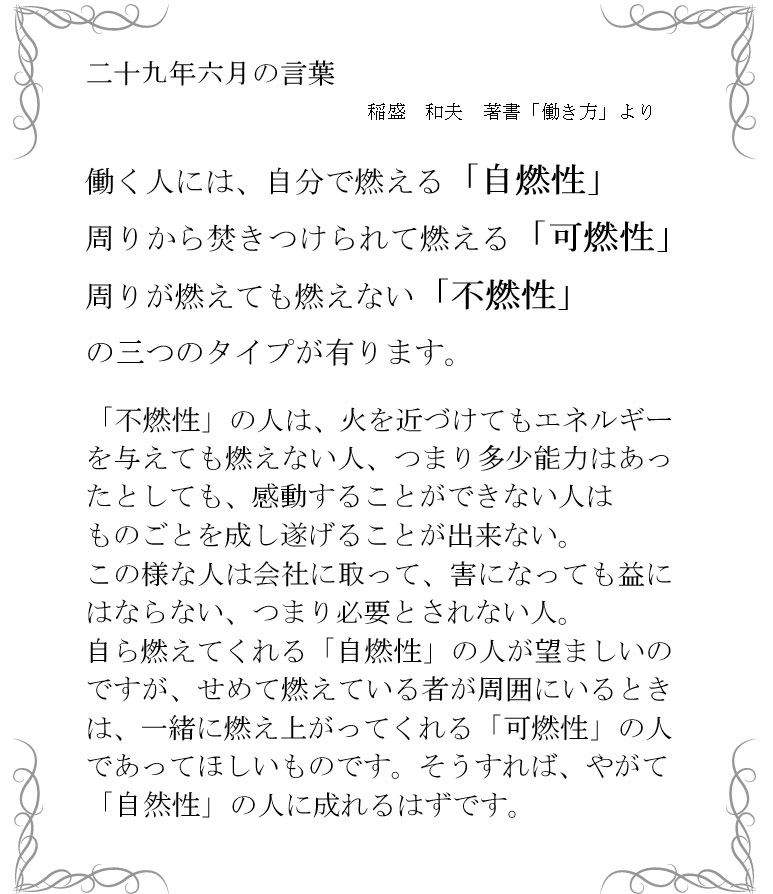 二十九年六月の言葉
稲盛　和夫　著書「働き方」より
働く人には、自分で燃える「自燃性」
周りから焚きつけられて燃える「可燃性」
周りが燃えても燃えない「不燃性」
の三つのタイプが有ります。
「不燃性」の人は、火を近づけてもエネルギー
を与えても燃えない人、つまり多少能力はあっ
たとしても、感動することができない人は
ものごとを成し遂げることが出来ない。
この様な人は会社に取って、害になっても益に
はならない、つまり必要とされない人。
自ら燃えてくれる「自燃性」の人が望ましいの
ですが、せめて燃えている者が周囲にいるとき
は、一緒に燃え上がってくれる「可燃性」の人
であってほしいものです。そうすれば、やがて
「自然性」の人に成れるはずです。